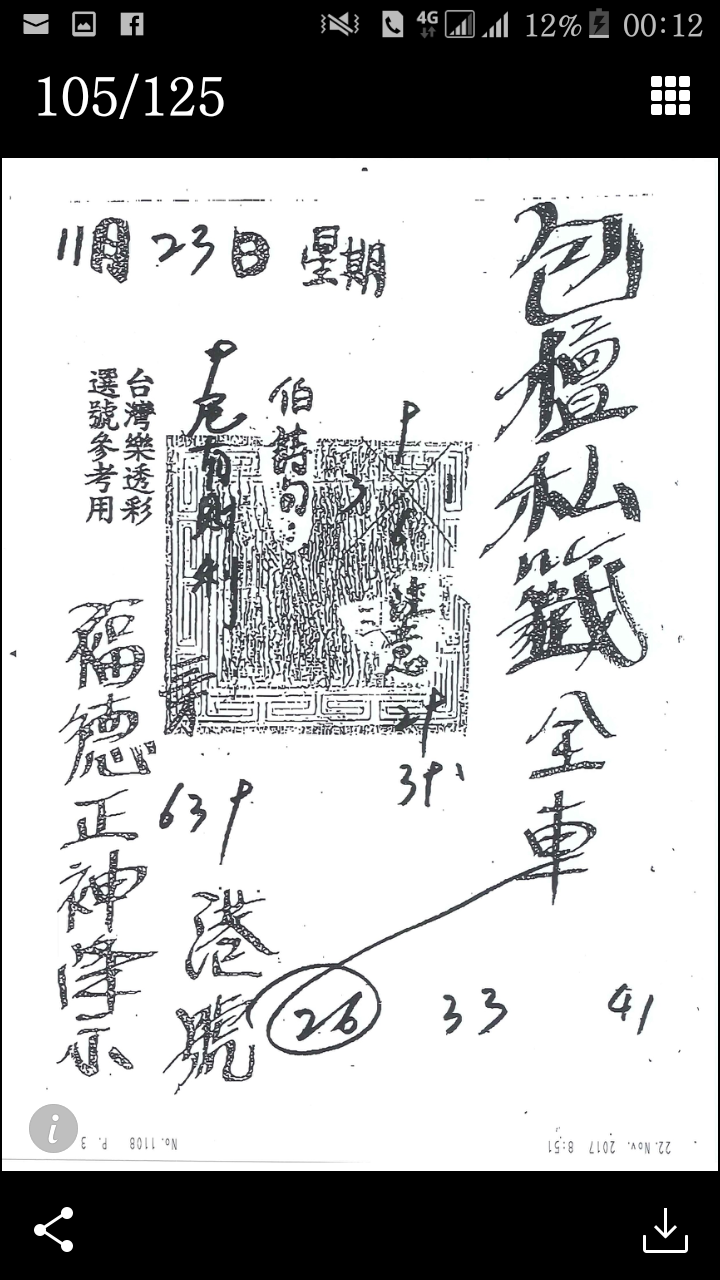 4G 12% 00:12
105/125
包壇私籤全車
11月23日 星期
台灣樂透彩
選號參考用
伯
尾
3
6
63
福德正神降示
港號
26 33 41
22. Nov. 2017 8:51
No. 1108 P. 3